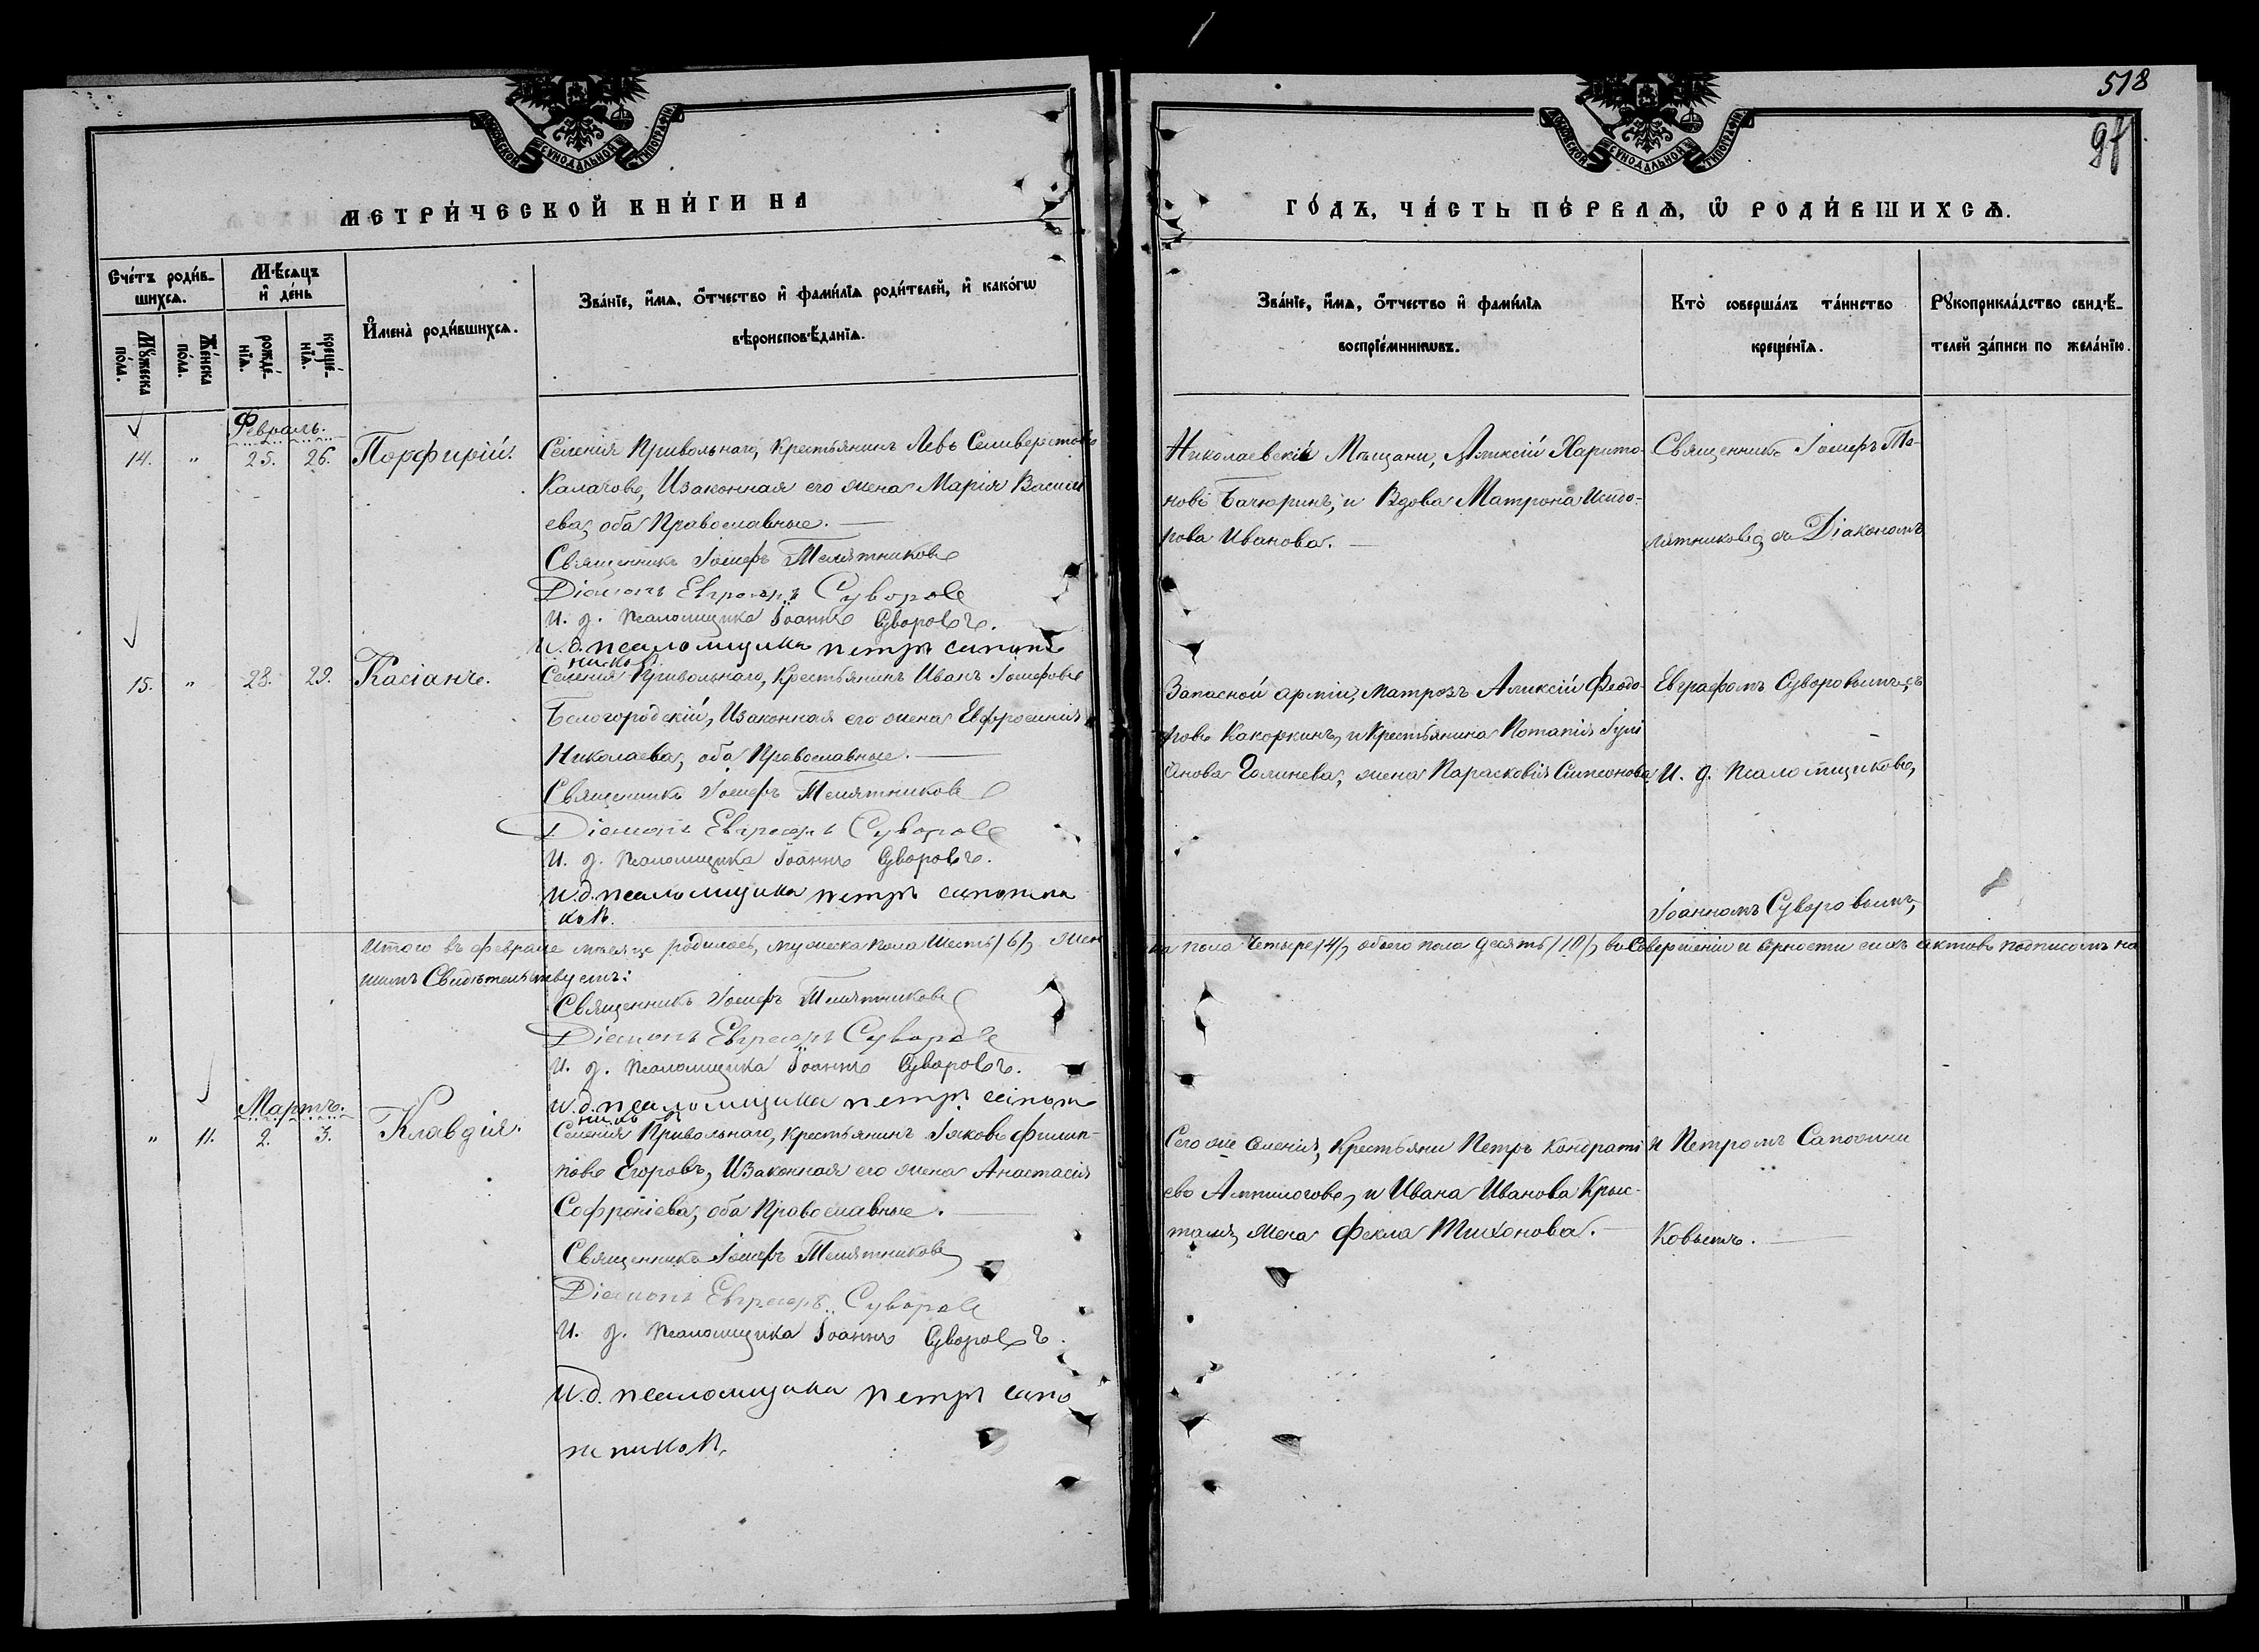 518
97
МОСКОВСКОЙ СѴНОДАЛЬНОЙ ТИПОГРАФІИ
МОСКОВСКОЙ СѴНОДАЛЬНОЙ ТИПОГРАФІИ
МЕТРИ́ЧЕСКОЙ КНИ́ГИ НА
ГО́ДЪ, ЧА́СТЬ ПЕ́РВАѦ, Ѡ҆ РОДИ́ВШИХСѦ.
Сче́тъ роди́в-
шихсѧ.
Мꙋ́жеска
по́ла.
Же́нска
по́ла.
Мѣ́сѧцъ
и҆ де́нь
рожде́-
нїѧ.
креще́-
нїѧ.
И҆мена̀ роди́вшихсѧ.
Зва́нїе, и҆́мѧ, ѻ҆́тчество и҆ фами́лїѧ роди́телей, и҆ како́гѡ
вѣроисповѣ́данїѧ.
Зва́нїе, и҆́мѧ, ѻ҆́тчество и҆ фами́лїѧ
воспрїе́мникѡвъ.
Кто̀ соверша́лъ та́инство
креще́нїѧ.
Рꙋкоприкла́дство свидѣ́-
телей за́писи по жела́нїю.
Февраль.
14. " 25. 26. Порфирій.
Селенія Привольнаго, Крестьянинъ Левъ Селиверстовъ
Калачовъ, Изаконная его жена Марія Василі
ева, оба Православные.
Священникъ Іосифъ Телятниковъ
Діаконъ Евграфъ Суворовъ
И. д. псаломщика Іоаннъ Суворовъ.
и. д. псаломщика петръ сапож
никовъ
Николаевскій Мѣщани, Алексій Харито-
новъ Бачюринъ, и Вдова Матрона Исидо-
рова Иванова.
Священникъ Іосифъ Те-
лятниковъ, съ Діакономъ
15. " 28. 29. Касіанъ.
Селенія Привольнаго, Крестьянинъ Иванъ Іосифовъ
Белогородскій, Изаконная его жена Евфросинія
Николаева, оба Православные.
Священникъ Іосифъ Телятниковъ
Діаконъ Евграфъ Суворовъ
И. д. псаломщика Іоаннъ Суворовъ.
и. д. псаломщика петръ сапожни
ковъ.
Запасной арміи, матрозъ Алексій Феодо-
ровъ Какоркинъ, и Крестьянина Потапія Іулі
анова Галинева, жена Параскевія Симеонова
Евграфомъ Суворовымъ, съ
И. д. Псаломщиковъ,
Іоанномъ Суворовымъ,
Итого въ февралѣ мѣсяце родилось, мужеска пола Шесть /6/, жен
ска пола Четыре /4/, обоего пола десять /10/, во Совершеніи и верности сихъ актовъ подписомъ на
шимъ Свидѣтельствуемъ:
Священникъ Іосифъ Телятниковъ
Діаконъ Евграфъ Суворовъ
И. д. псаломщика Іоаннъ Суворовъ.
и. д. псаломщика петръ сапож
никовъ
Мартъ.
" 11. 2. 3. Клавдія.
Селенія Привольнаго, Крестьянинъ Іаковъ Филип-
повъ Егоровъ, Изаконная его жена Анастасія
Софроніева, оба Православные.
Священникъ Іосифъ Телятниковъ
Діаконъ Евграфъ Суворовъ
И. д. псаломщика Іоаннъ Суворовъ.
и. д. псаломщика петръ сапо
жниковъ.
Сего же Селенія, Крестьяни Петръ Кондрати
евъ Ампилоговъ, и Ивана Иванова Крыс-
таля, жена Фекла Тихонова.
и Петромъ Сапожни
ковымъ.